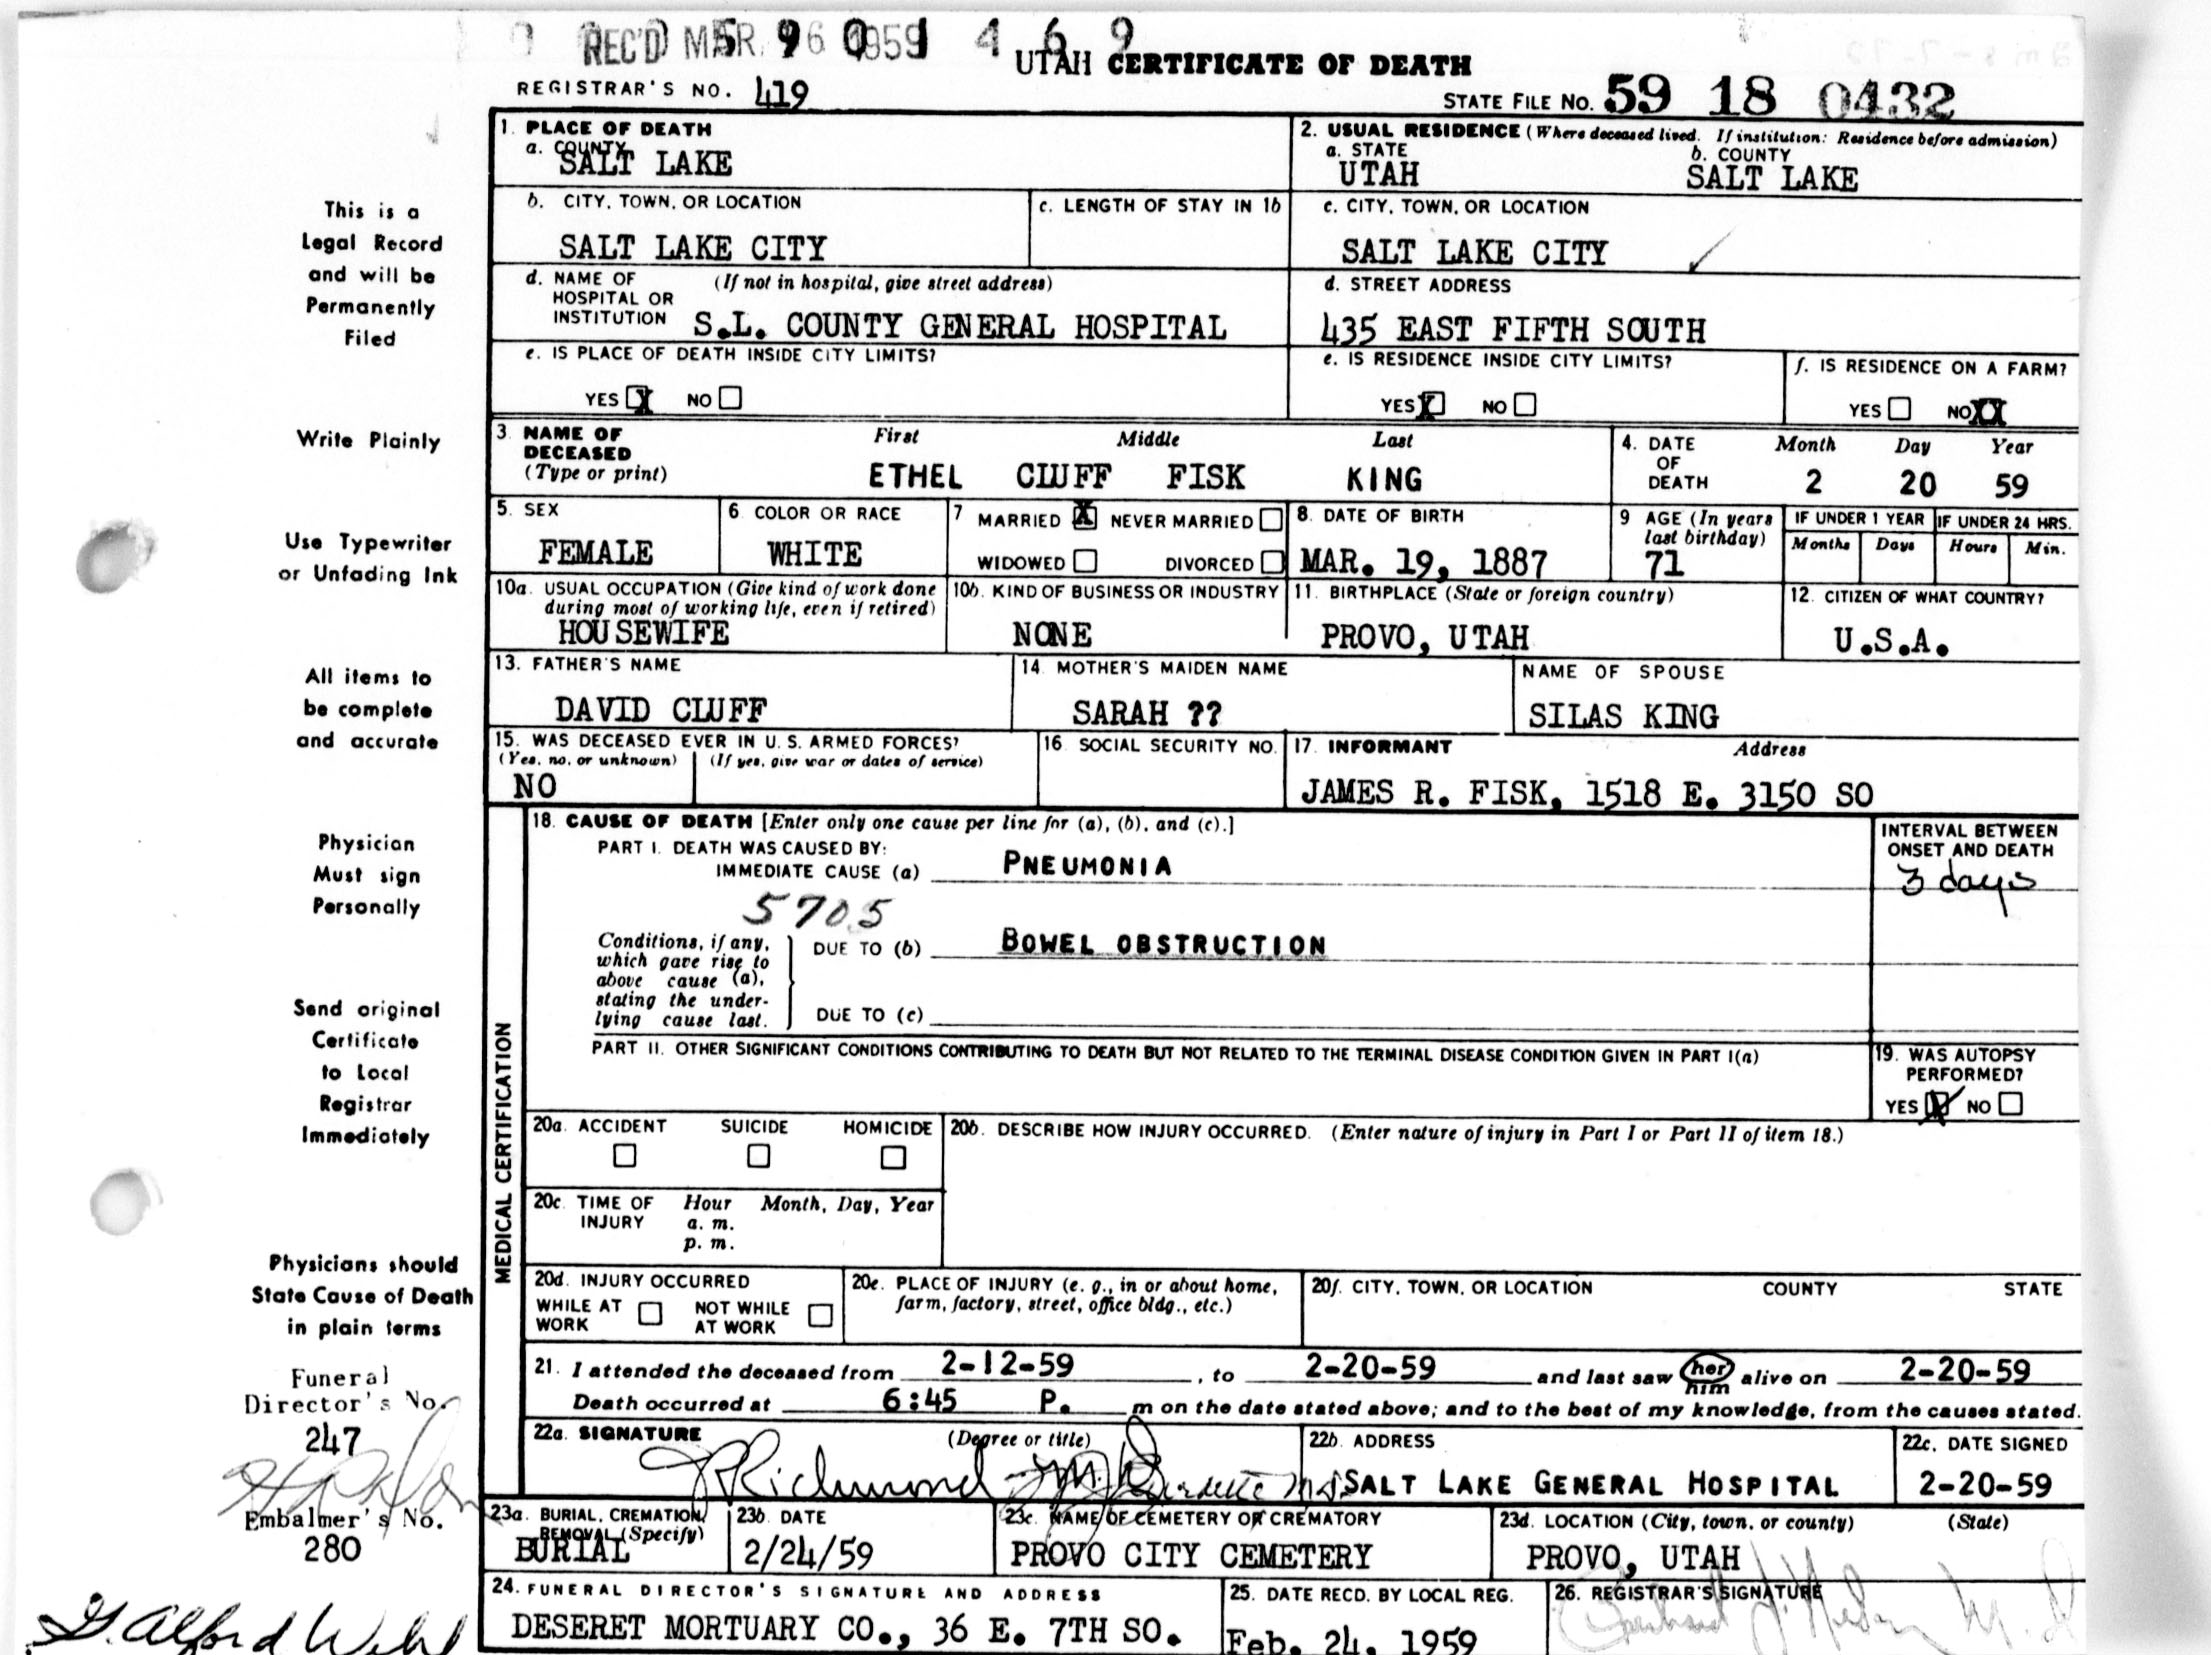 REC'D MAR 26 1959 590 1469
UTAH CERTIFICATE OF DEATH
REGISTRAR'S NO. 419
STATE FILE NO. 59 18 0432
1. PLACE OF DEATH
a. COUNTY
SALT LAKE
2. USUAL RESIDENCE (Where deceased lived. If institution: Residence before admission)
a. STATE b. COUNTY
UTAH SALT LAKE
b. CITY, TOWN, OR LOCATION c. LENGTH OF STAY IN 1b c. CITY, TOWN, OR LOCATION
SALT LAKE CITY SALT LAKE CITY
d. NAME OF HOSPITAL OR INSTITUTION (If not in hospital, give street address)
S.L. COUNTY GENERAL HOSPITAL
d. STREET ADDRESS
435 EAST FIFTH SOUTH
e. IS PLACE OF DEATH INSIDE CITY LIMITS?
YES X NO
e. IS RESIDENCE INSIDE CITY LIMITS?
YES X NO
f. IS RESIDENCE ON A FARM?
YES NO XX
3. NAME OF DECEASED (Type or print) First Middle Last
ETHEL CLUFF FISK KING
4. DATE OF DEATH Month Day Year
2 20 59
5. SEX
FEMALE
6. COLOR OR RACE
WHITE
7 MARRIED X NEVER MARRIED
WIDOWED DIVORCED
8. DATE OF BIRTH
MAR. 19, 1887
9 AGE (In years last birthday)
71
IF UNDER 1 YEAR IF UNDER 24 HRS.
Months Days Hours Min.
10a. USUAL OCCUPATION (Give kind of work done
during most of working life, even if retired)
HOUSEWIFE
10b. KIND OF BUSINESS OR INDUSTRY
NONE
11. BIRTHPLACE (State or foreign country)
PROVO, UTAH
12. CITIZEN OF WHAT COUNTRY?
U.S.A.
13. FATHER'S NAME
DAVID CLUFF
14. MOTHER'S MAIDEN NAME
SARAH ??
NAME OF SPOUSE
SILAS KING
15. WAS DECEASED EVER IN U. S. ARMED FORCES?
(Yes, no, or unknown) (If yes, give war or dates of service)
NO
16. SOCIAL SECURITY NO.
17. INFORMANT Address
JAMES R. FISK, 1518 E. 3150 SO
MEDICAL CERTIFICATION
18. CAUSE OF DEATH [Enter only one cause per line for (a), (b), and (c).]
PART I. DEATH WAS CAUSED BY:
IMMEDIATE CAUSE (a) PNEUMONIA
INTERVAL BETWEEN
ONSET AND DEATH
3 days
5705
Conditions, if any,
which gave rise to
above cause (a),
stating the under-
lying cause last.
DUE TO (b) BOWEL OBSTRUCTION
DUE TO (c)
PART II. OTHER SIGNIFICANT CONDITIONS CONTRIBUTING TO DEATH BUT NOT RELATED TO THE TERMINAL DISEASE CONDITION GIVEN IN PART I(a)
19. WAS AUTOPSY
PERFORMED?
YES X NO
20a. ACCIDENT SUICIDE HOMICIDE
20b. DESCRIBE HOW INJURY OCCURRED. (Enter nature of injury in Part I or Part II of item 18.)
20c. TIME OF INJURY Hour Month, Day, Year
a. m.
p. m.
20d. INJURY OCCURRED
WHILE AT WORK NOT WHILE AT WORK
20e. PLACE OF INJURY (e. g., in or about home,
farm, factory, street, office bldg., etc.)
20f. CITY, TOWN, OR LOCATION COUNTY STATE
21. I attended the deceased from 2-12-59, to 2-20-59 and last saw her him alive on 2-20-59
Death occurred at 6:45 P. m on the date stated above; and to the best of my knowledge, from the causes stated.
22a. SIGNATURE (Degree or title)
Richmond M.D.
22b. ADDRESS
SALT LAKE GENERAL HOSPITAL
22c. DATE SIGNED
2-20-59
23a. BURIAL, CREMATION, REMOVAL (Specify)
BURIAL
23b. DATE
2/24/59
23c. NAME OF CEMETERY OR CREMATORY
PROVO CITY CEMETERY
23d. LOCATION (City, town, or county) (State)
PROVO, UTAH
24. FUNERAL DIRECTOR'S SIGNATURE AND ADDRESS
DESERET MORTUARY CO., 36 E. 7TH SO.
25. DATE RECD. BY LOCAL REG.
Feb. 24, 1959
26. REGISTRAR'S SIGNATURE
This is a
Legal Record
and will be
Permanently
Filed
Write Plainly
Use Typewriter
or Unfading Ink
All items to
be complete
and accurate
Physician
Must sign
Personally
Send original
Certificate
to Local
Registrar
Immediately
Physicians should
State Cause of Death
in plain terms
Funeral
Director's No.
247
Embalmer's No.
280